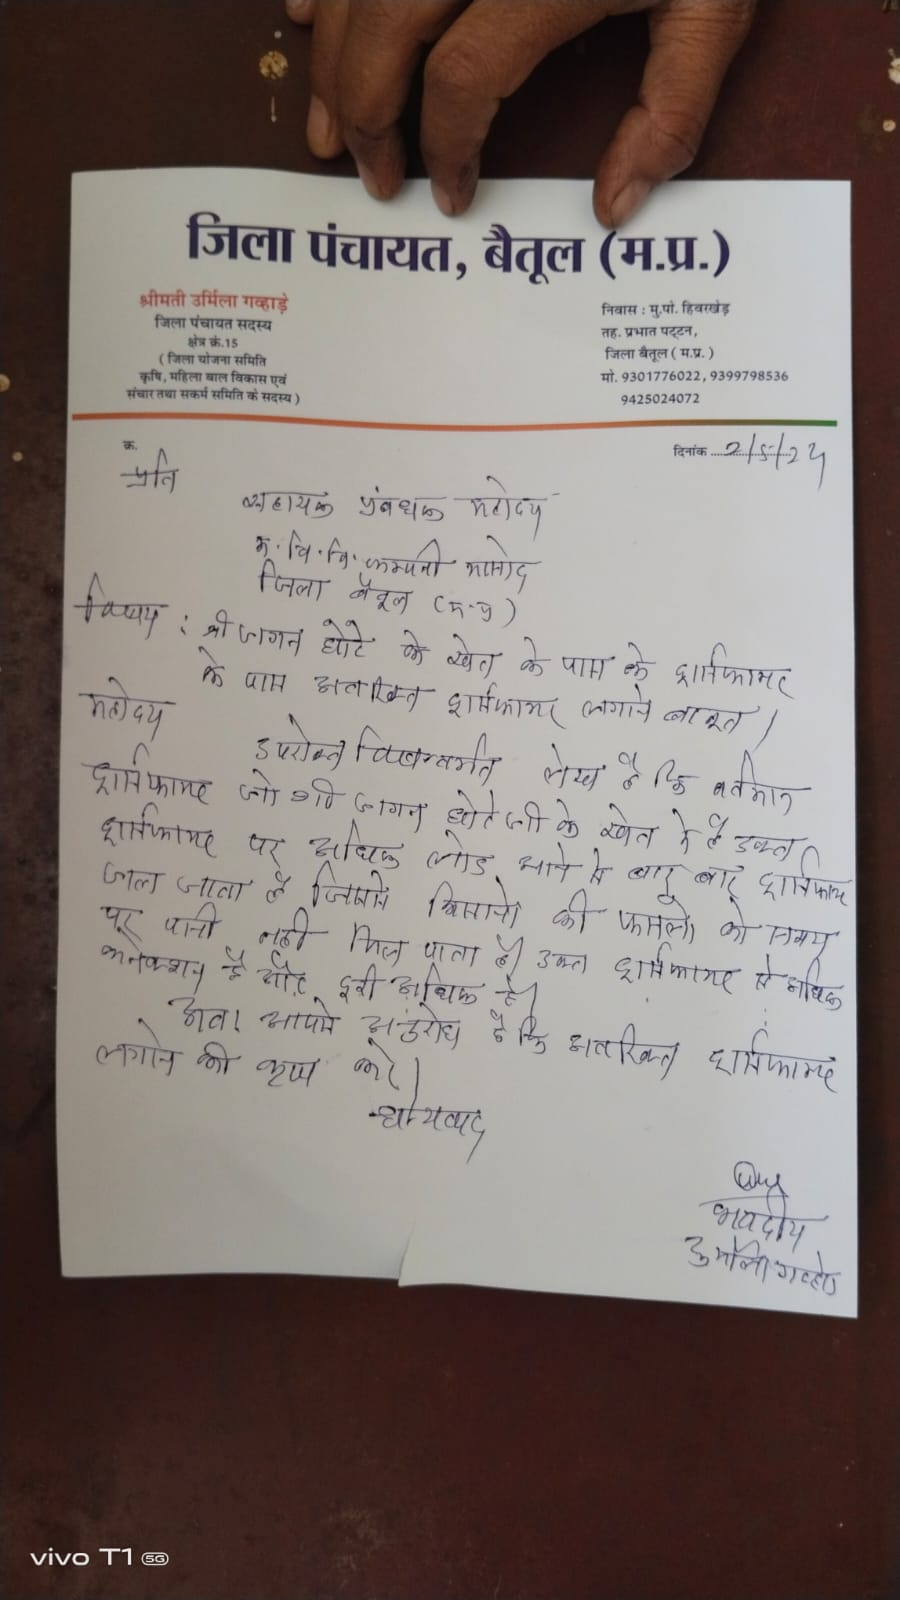 जिला पंचायत, बैतूल (म.प्र.)
श्रीमती उर्मिला गव्हाड़े
जिला पंचायत सदस्य
क्षेत्र क्रं.15
( जिला योजना समिति
कृषि, महिला बाल विकास एवं
संचार तथा सकर्म समिति के सदस्य )
निवास : मु.पो. हिवरखेड़
तह. प्रभात पट्टन,
जिला बैतूल ( म.प्र. )
मो. 9301776022, 9399798536
9425024072
क्र.
दिनांक 2/5/24
प्रति
सहायक प्रंबधक महोदय
म. वि. वि. कम्पनी मासोद
जिला बैतूल (म-प्र)
विषय : श्री जागन धोटे के खेत के पास के ट्रांसफामर
के पास अतरिक्त ट्रांसफामर लगाने बाबत।
महोदय
उपरोक्त लेख है कि वर्तमान
ट्रांसफामर जो श्री जागन धोटे जी के खेत में है उक्त
ट्रांसफामर पर अधिक लोड आने से बार बार ट्रांसफामर
जल जाता है जिससे किसानो की फसलो को समय
पर पानी नही मिल पाता है। उक्त ट्रांसफामर से अधिक
कनेक्शन है और दूरी अधिक है।
अतः आपसे अनुरोध है कि अतरिक्त ट्रांसफामर
लगाने की कृपा करे।
धन्यवाद
भवदीय
उर्मिला गव्हाड़े
vivo T1 5G